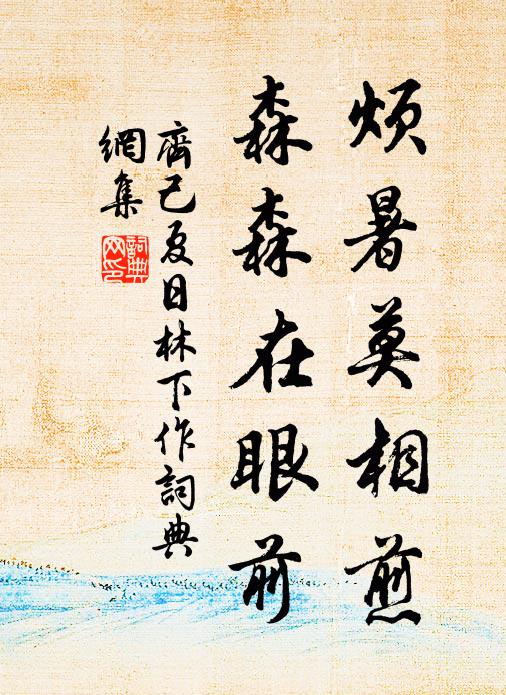 烦暑莫相煎
森森在眼前
齊己夏日林下作詞典
網集
詞典
网印